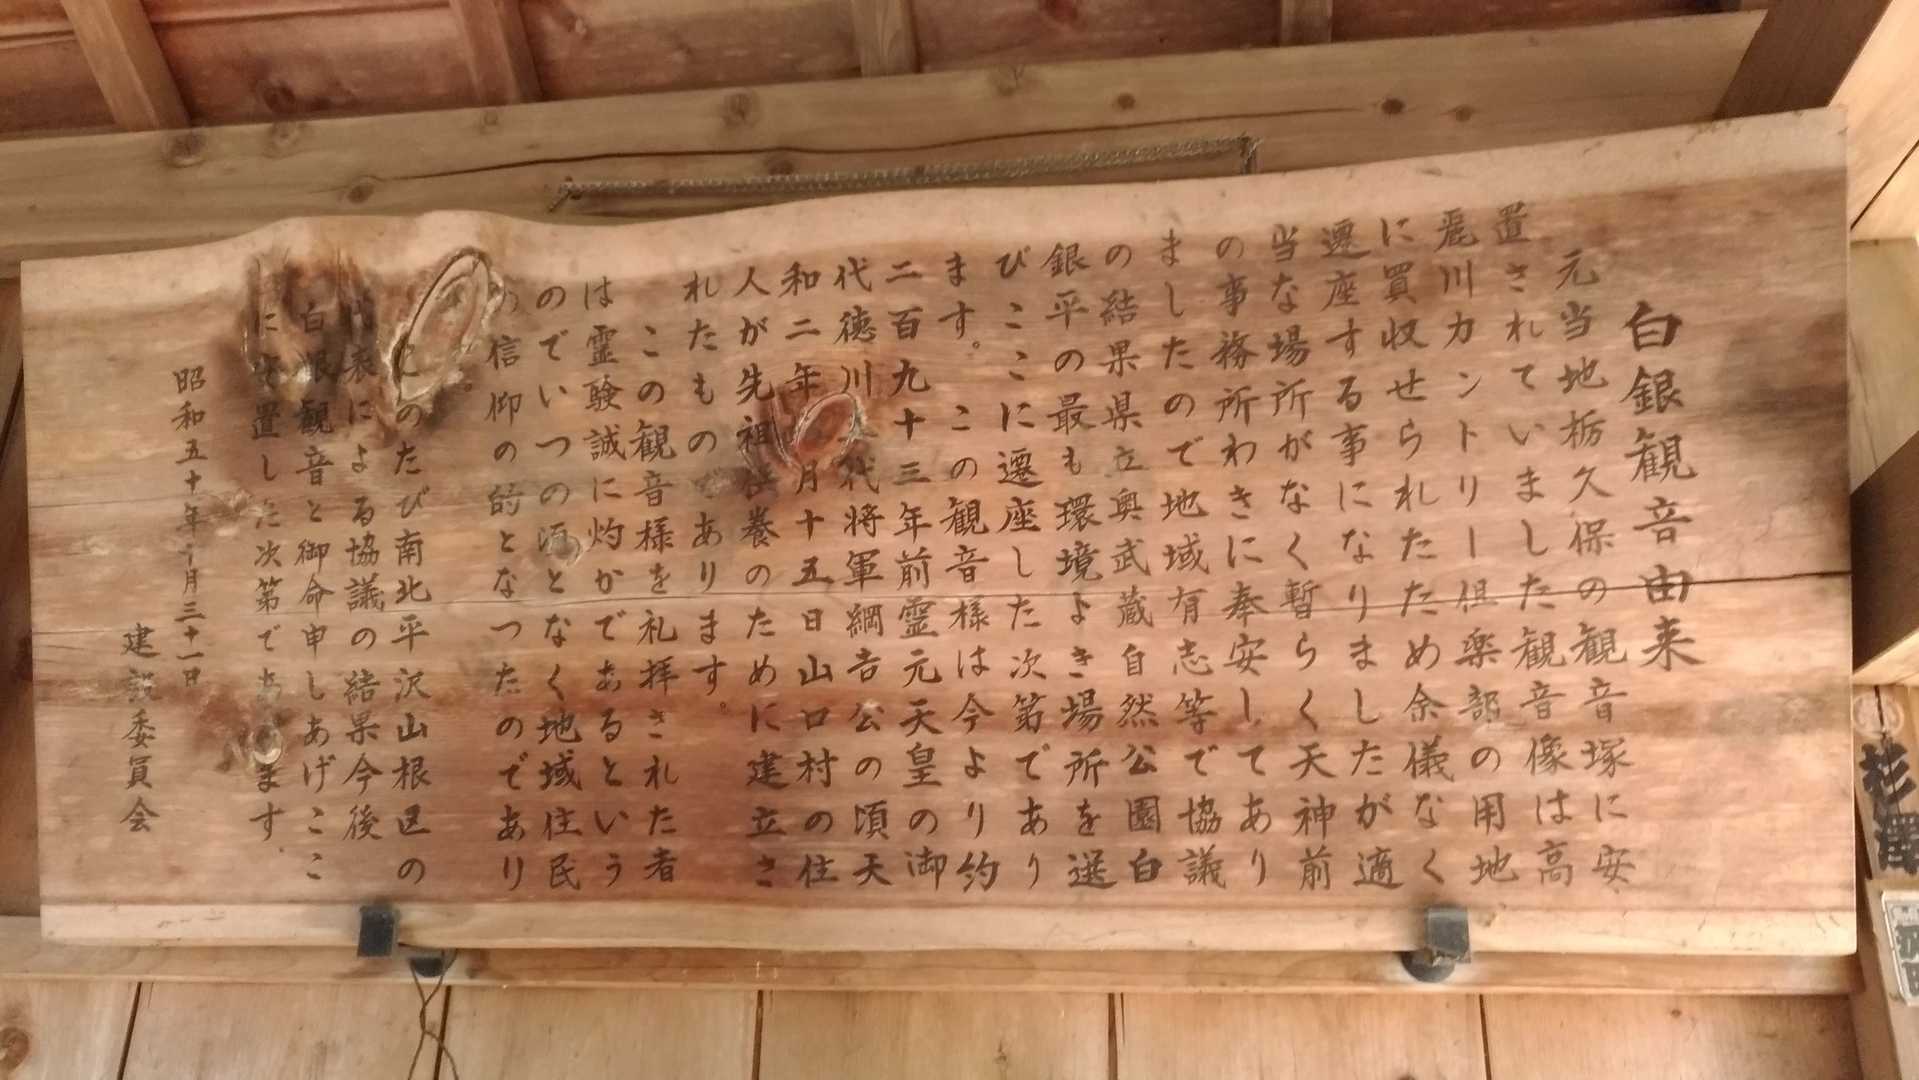 白銀観音由来
元当地栃久保の観音塚に安
置されていました観音像は高
麗川カントリー倶楽部の用地
に買収せられたため余儀なく
遷座する事になりましたが適
当な場所がなく暫らく天神前
の事務所わきに奉安してあり
ましたので地域有志等で協議
の結果県立奥武蔵自然公園白
銀平の最も環境よき場所を選
びここに遷座した次第であり
ます。この観音様は今より約
二百九十三年前霊元天皇の御
代徳川 代将軍綱吉公の頃天
和二年 月十五日山口村の住
人が先祖供養のために建立さ
れたもの あります。
この観音様を礼拝された者
は霊験誠に灼かであるという
のでいつの頃となく地域住民
の信仰の的となったのであり
。
このたび南北平沢山根区の
代表による協議の結果今後
白銀観音と御命申しあげここ
に安置した次第であ ます。
昭和五十年十月三十一日
建設委員会
杉澤